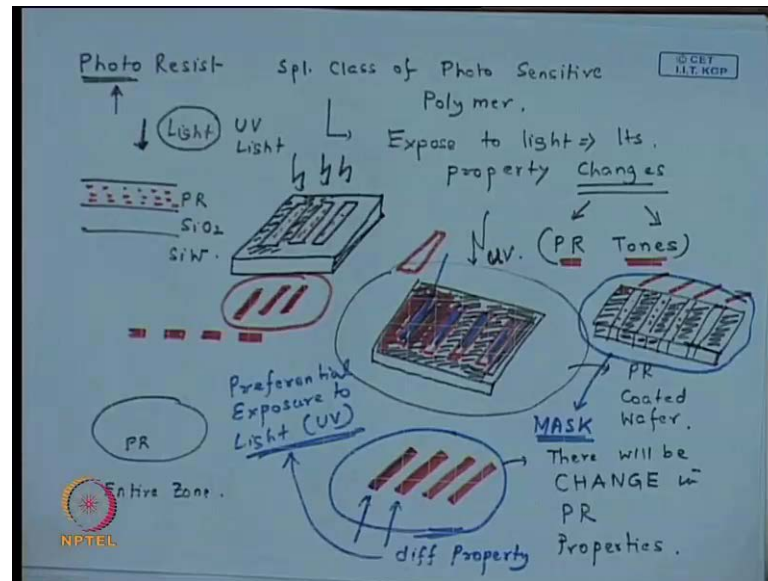 Photo Resist
Spl. Class of Photo Sensitive
Polymer.
© CET
I.I.T. KGP
Light
UV
Light
Expose to light => Its.
property Changes
PR
SiO2
SiW.
UV.
(PR Tones)
Preferential
Exposure to
Light (UV)
PR
Coated
Wafer.
MASK
There will be
CHANGE in
PR
Properties.
PR
Entire Zone.
diff Property
NPTEL